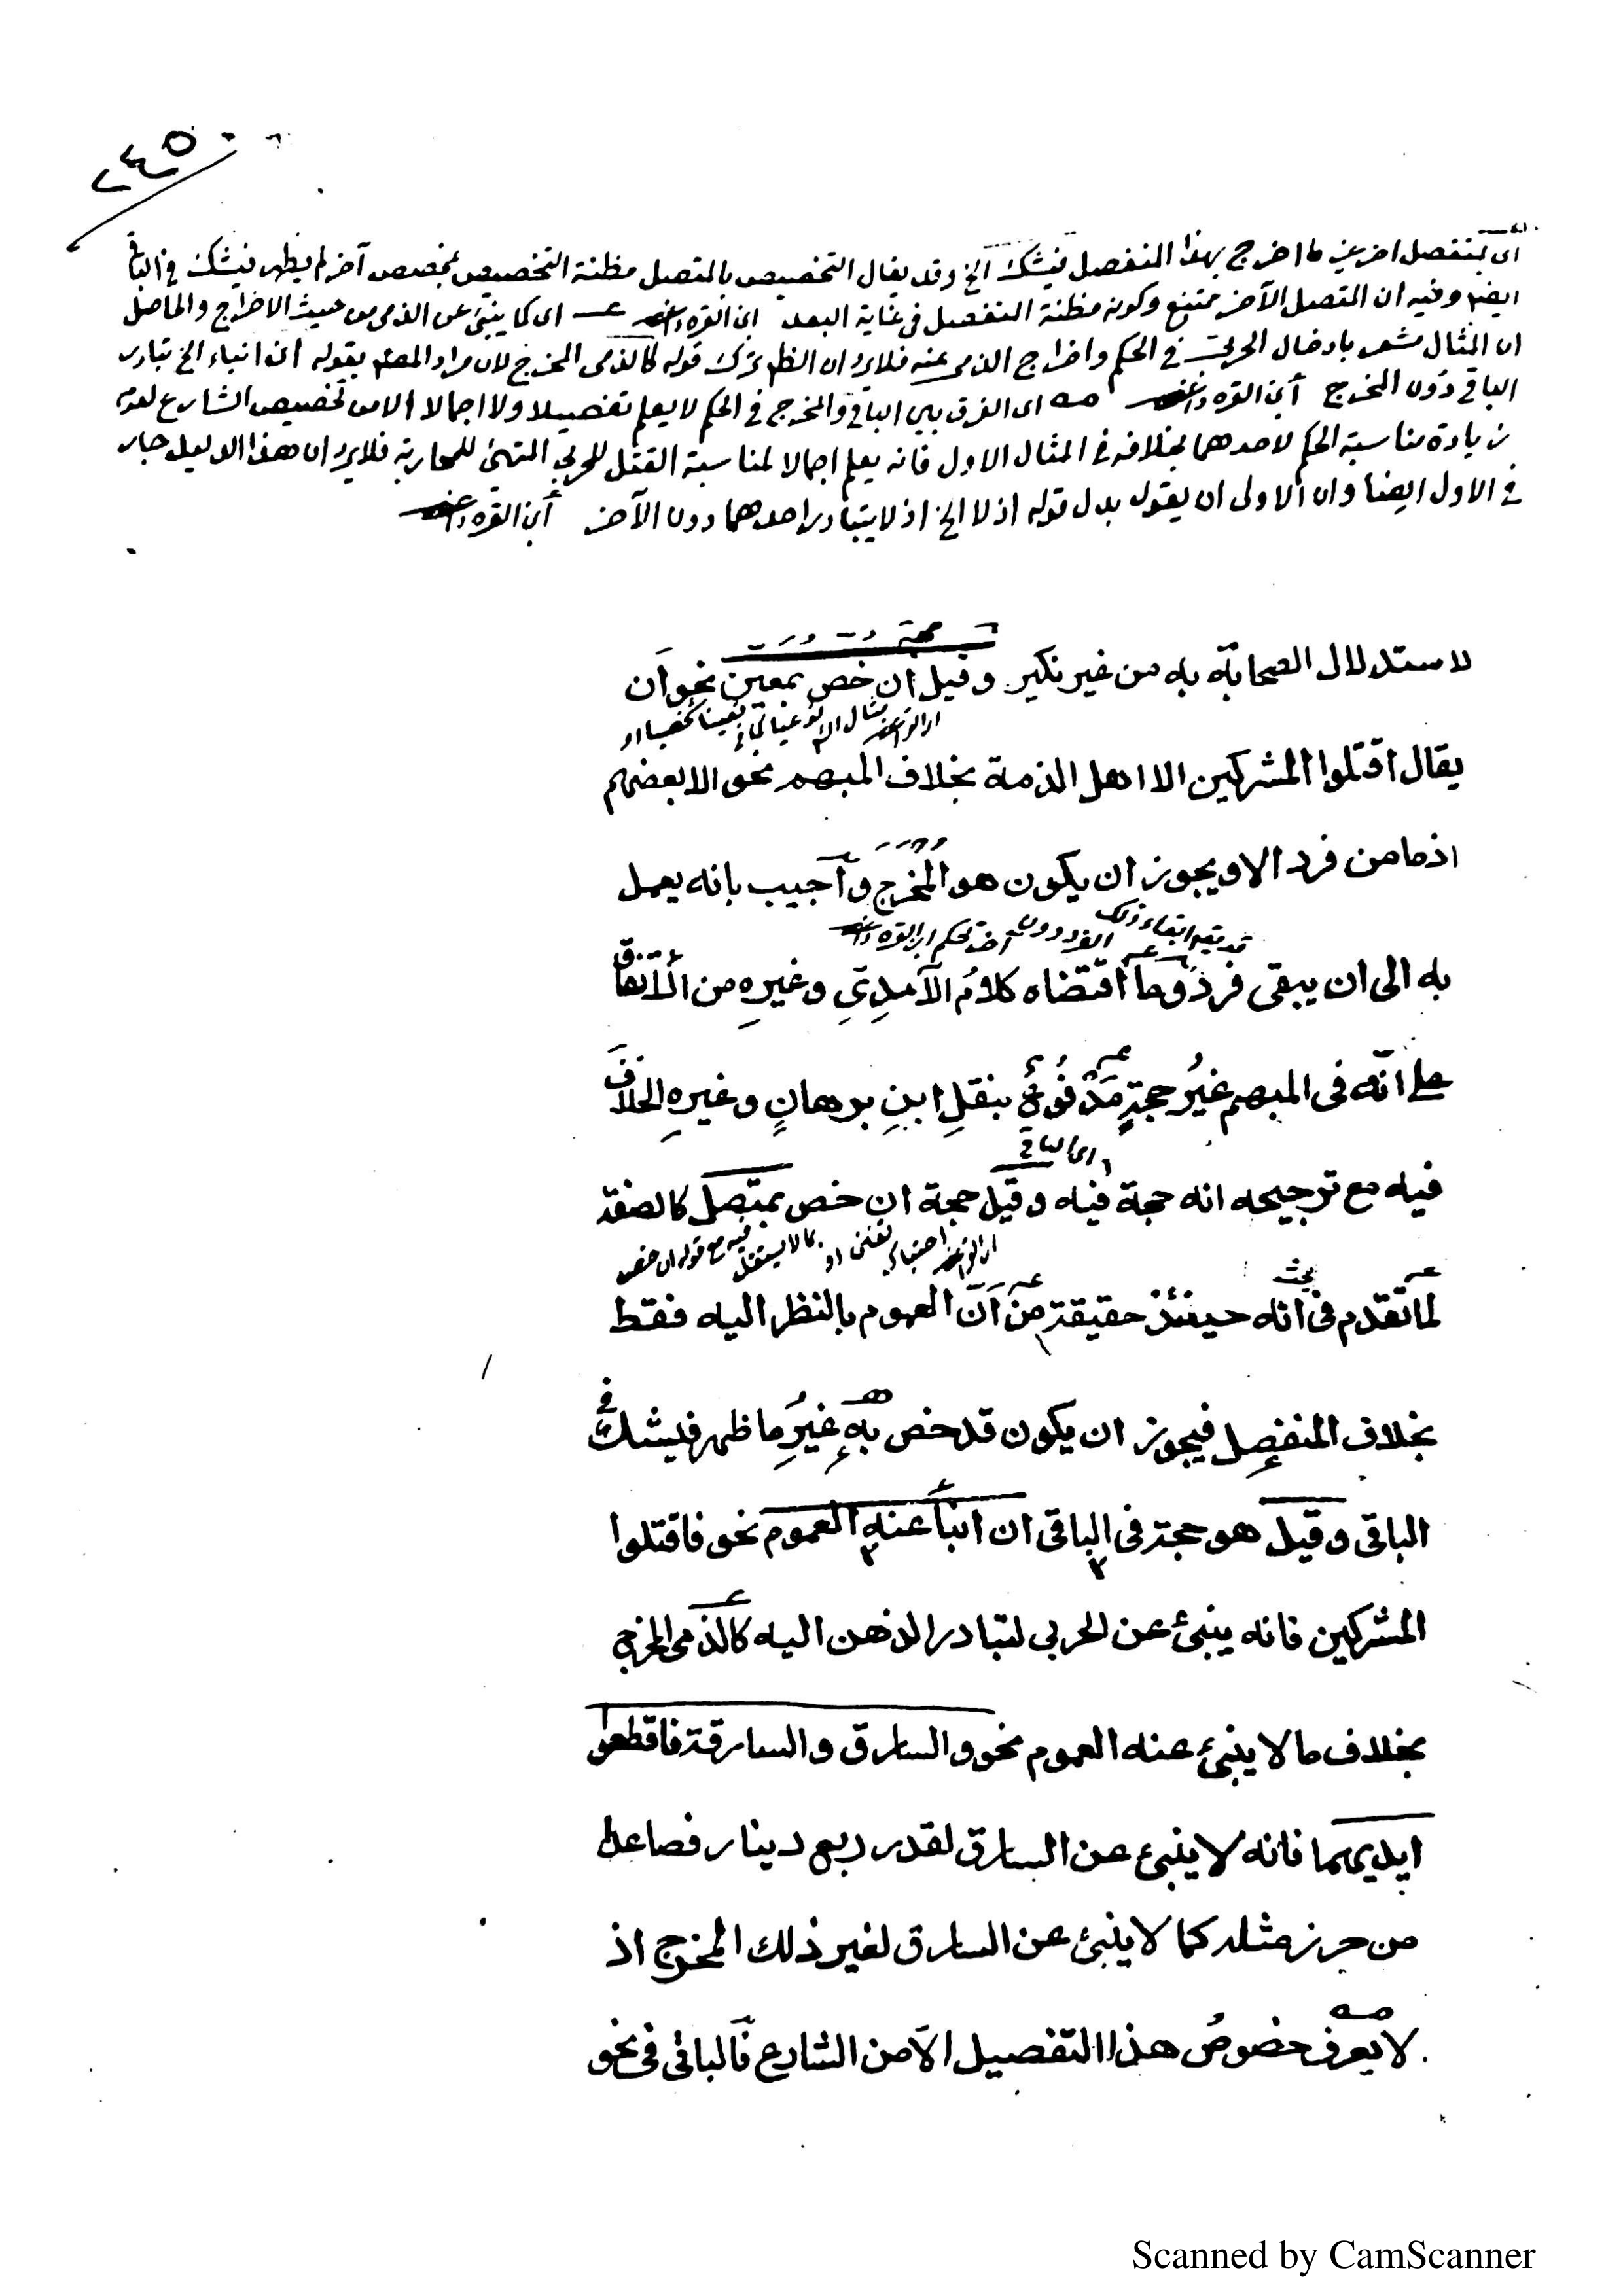 ٢٤٥
اى بمنفصل اخر غير ما اخرج بهذا المنفصل فيشك الخ وقد يقال التخصيص بالمتصل مظنة التخصيص بمخصص آخر لم يظهر فيشك فى الباقى
ايضا وفيه ان المتصل الآخر ممتنع وكونه مظنة المنفصل فى غاية البعد ابن القره داغى عــ اى كما ينبئ عن الذمى من حيث الاخراج والحاصل
ان المثال مشعر بادخال الحربى فى الحكم واخراج الذمى عنه فلا يرد ان الظاهر ترك قوله كالذمى المخرج لان مراد المصنف بقوله ان انباء الخ تبادر
الباقى دون المخرج ابن القره داغى صه اى الفرق بين الباقى والمخرج فى الحكم لا يعلم تفصيلا ولا اجمالا الا من تخصيص الشارع لعدم
زيادة مناسبة الحكم لاحدهما بخلافه فى المثال الاول فانه يعلم اجمالا لمناسبة القتل للحربى المتهئ للمحاربة فلا يرد ان هذا الدليل جار
فى الاول ايضا وان الاولى ان يقول بدل قوله اذ لا الخ اذ لا يتبادر احدهما دون الآخر ابن القره داغى
لاستدلال الصحابة به من غير نكير وقيل ان خص بمعين نحو ان
يقال اقتلوا المشركين الا اهل الذمة بخلاف المبهم نحو الا بعضهم
اذ ما من فرد الا ويجوز ان يكون هو المخرج وأجيب بانه يعمل
به الى ان يبقى فرد وما اقتضاه كلام الآمدي وغيره من الاتفاق
على انه فى المبهم غير حجة مدفوع بنقل ابن برهان وغيره الخلاف
اى الباقى
فيه مع ترجيحه انه حجة فيه وقيل حجة ان خص بمتصل كالصفة
بحث
لما تقدم فى انه حينئذ حقيقة من أن العموم بالنظر اليه فقط
بخلاف المنفصل فيجوز ان يكون قد خص به غير ما ظهر فيشك فى
الباقى وقيل هو حجة فى الباقى ان انبأ عنه العموم نحو فاقتلوا
المشركين فانه ينبئ عن الحربى لتبادر الذهن اليه كالذمى المخرج
بخلاف ما لا ينبئ عنه العموم نحو والسارق والسارقة فاقطعوا
ايديهما فانه لا ينبئ عن السارق لقدر ربع دينار فصاعدا
من حرز مثله كما لا ينبئ عن السارق لغير ذلك المخرج اذ
لا يعرف خصوص هذا التفصيل الا من الشارع فالباقى فى نحو
Scanned by CamScanner